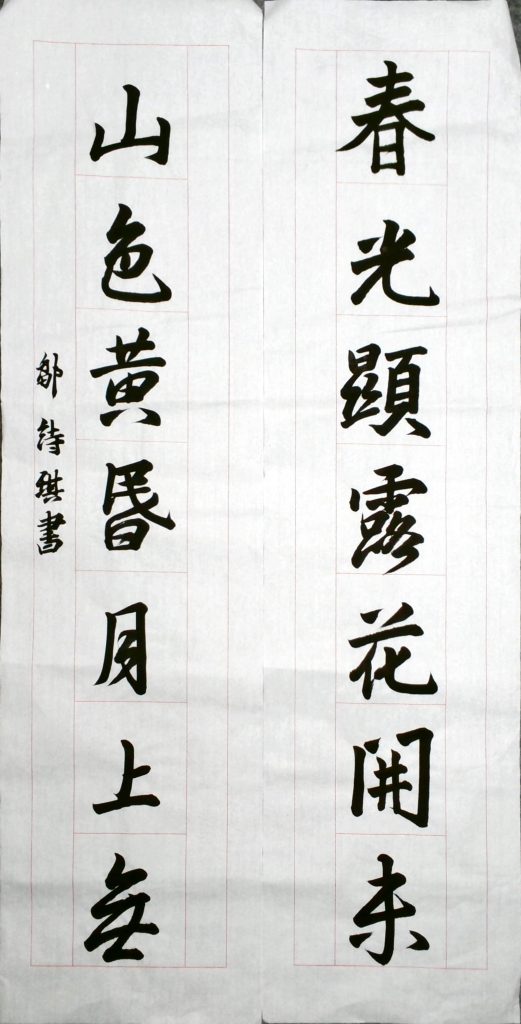 春光顯露花開未
山色黃昏月上無
鄒詩琪書